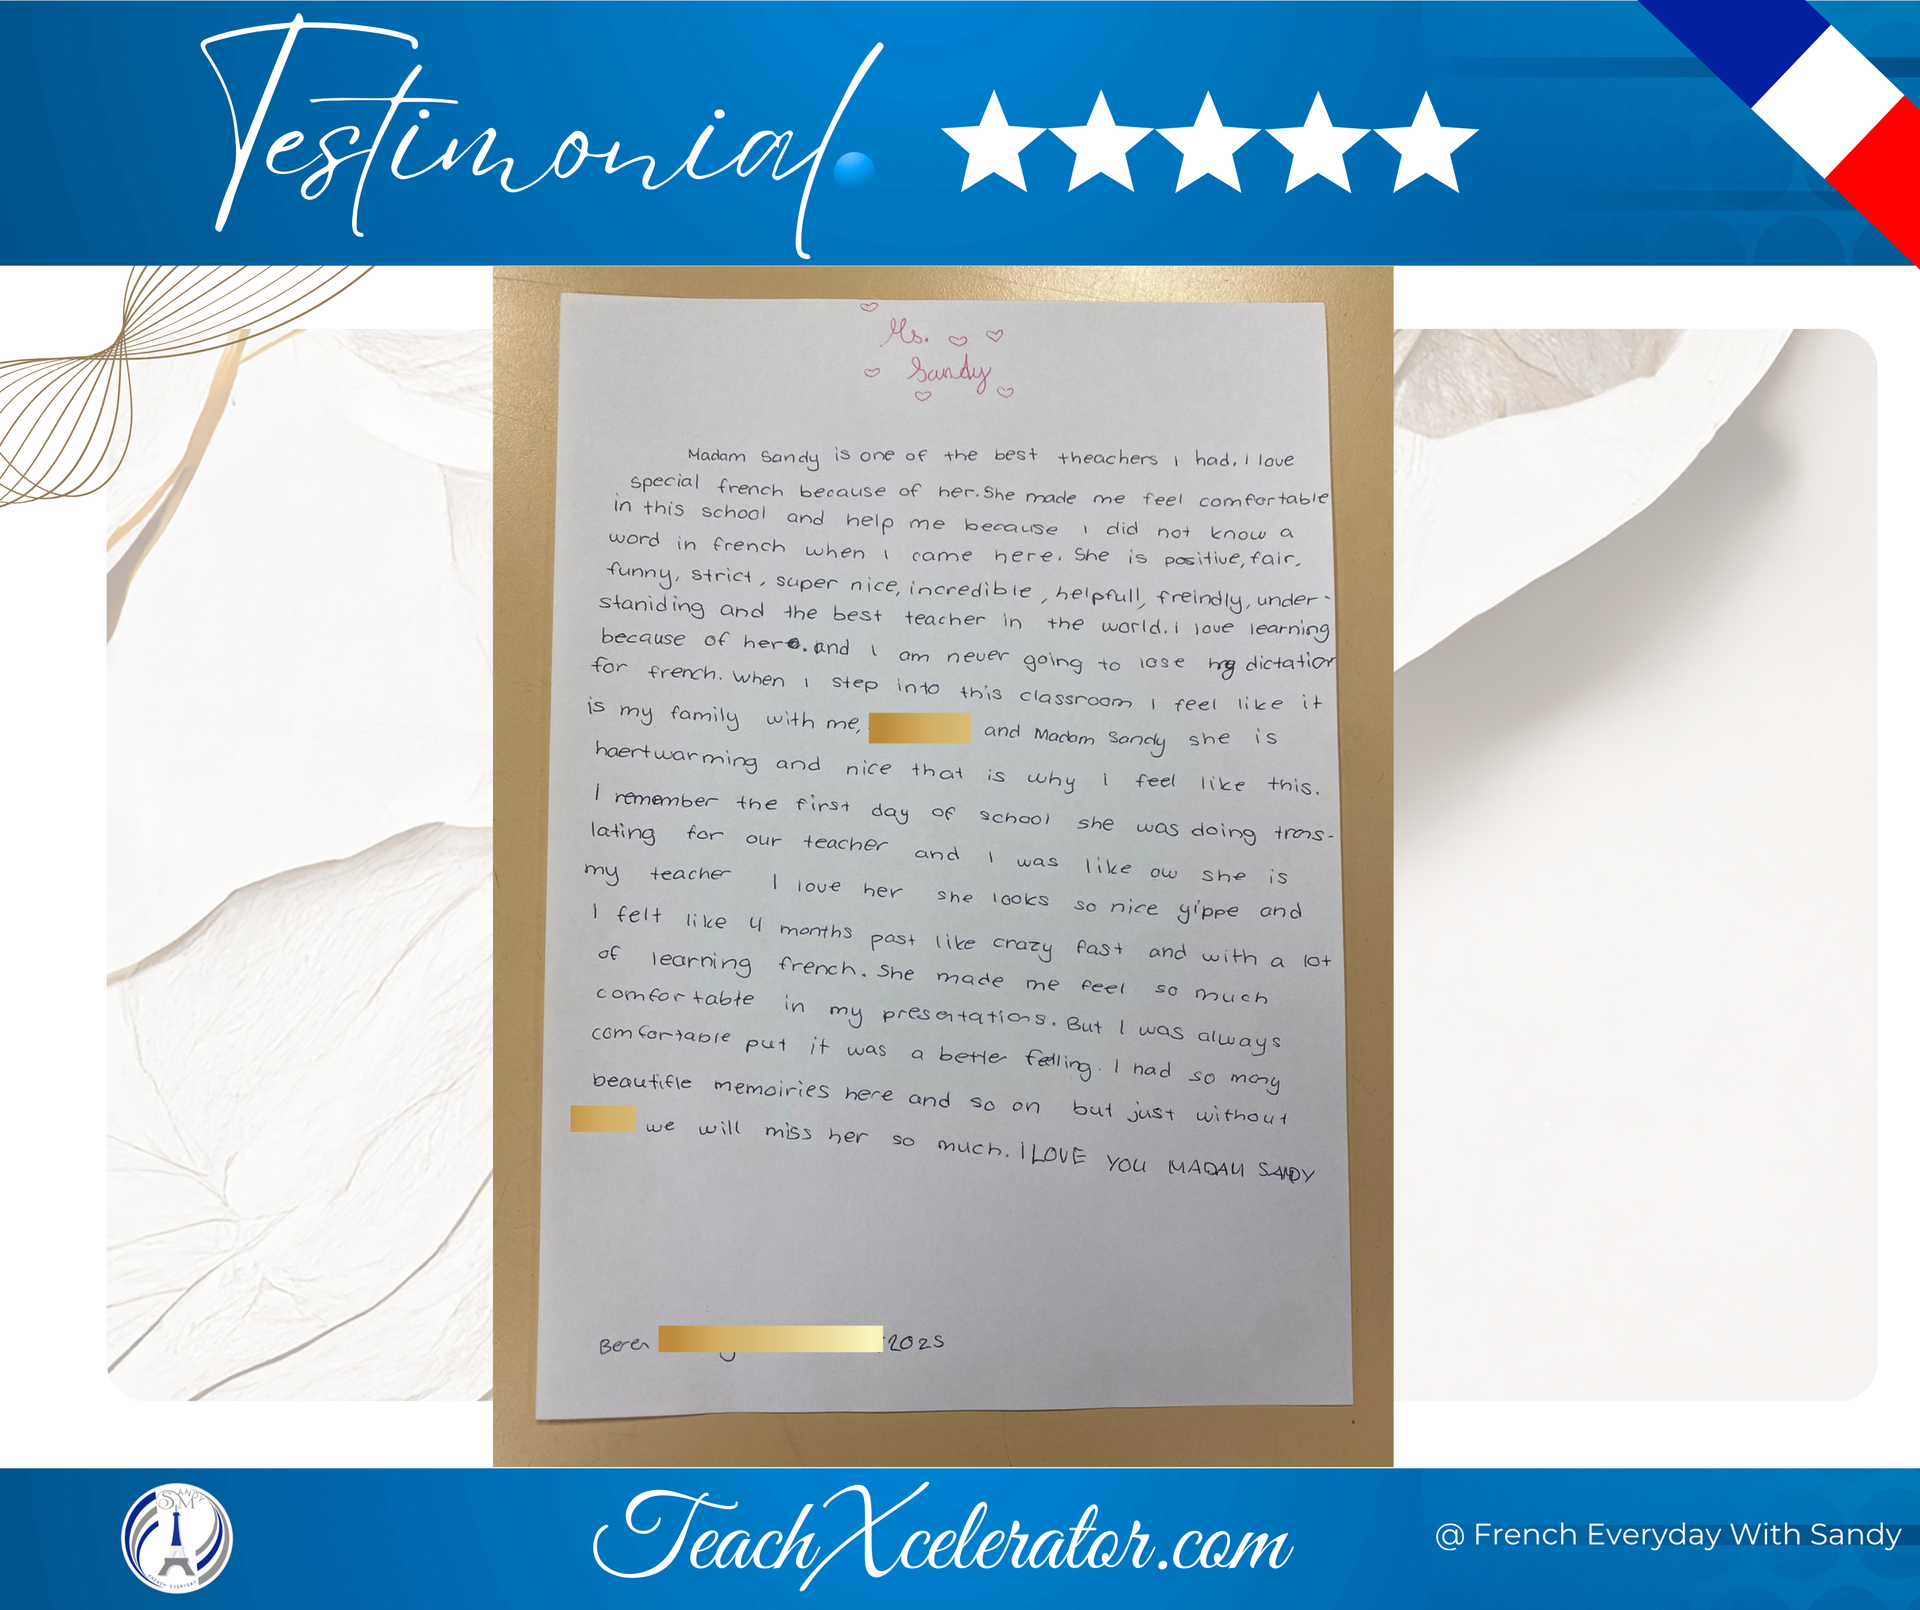 Testimonial.
Ms.
Sandy
Madam Sandy is one of the best theachers I had. I love
special french because of her. She made me feel comfortable
in this school and help me because I did not know a
word in french when I came here. She is positive, fair,
funny, strict, super nice, incredible, helpfull, freindly, under-
staniding and the best teacher in the world. i love learning
because of her. and I am never going to lose my dictation
for french. When I step into this classroom I feel like it
is my family with me, and Madam Sandy she is
haertwarming and nice that is why I feel like this.
I remember the first day of school she was doing trans-
lating for our teacher and I was like ow she is
my teacher I love her she looks so nice yippe and
I felt like 4 months past like crazy fast and with a lot
of learning french. She made me feel so much
comfortable in my presentations. But I was always
comfortable put it was a better felling. I had so many
beautifle memoiries here and so on but just without
we will miss her so much. I LOVE YOU MADAM SANDY
Beren 2025
SANDY
SM
FRENCH EVERYDAY
TeachXcelerator.com
@ French Everyday With Sandy